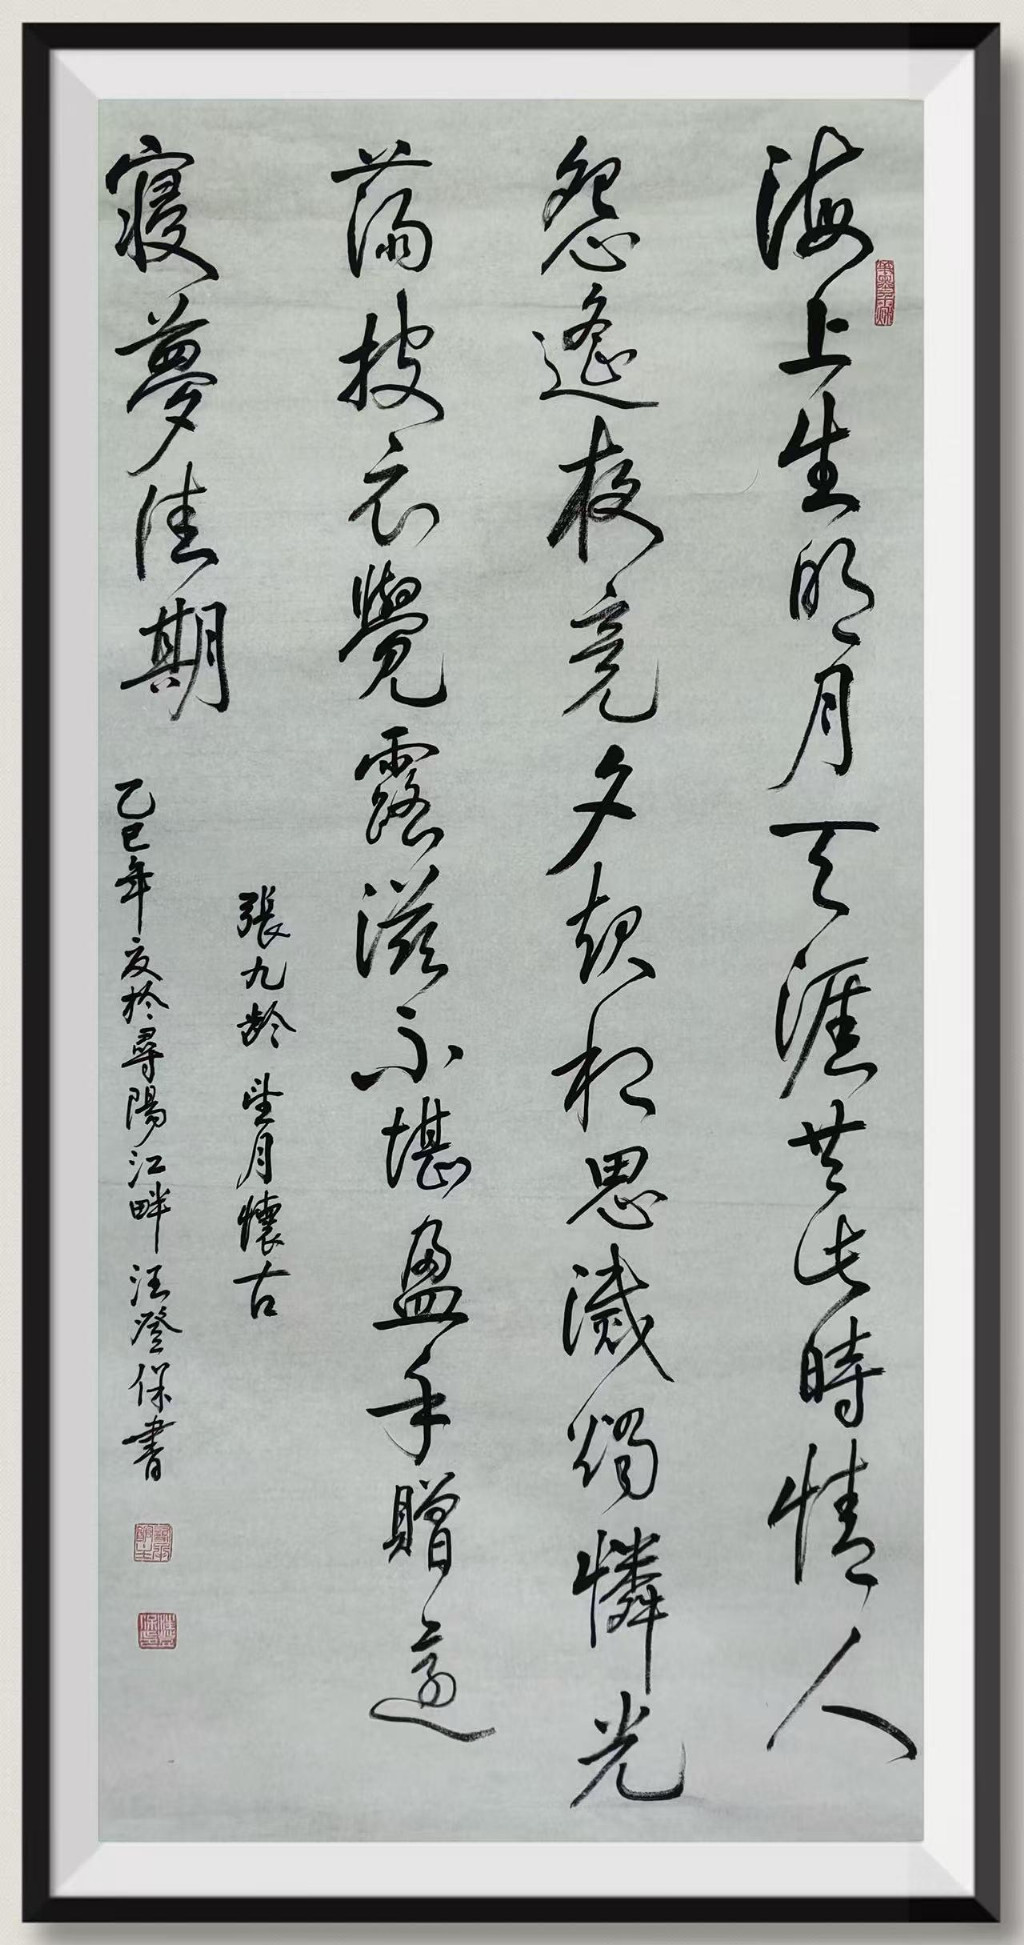 海上生明月天涯共此時情人
怨遙夜竟夕起相思滅燭憐光
滿披衣覺露滋不堪盈手贈還
寢夢佳期
張九龄望月懷古
乙巳年夏於尋陽江畔汪登保書